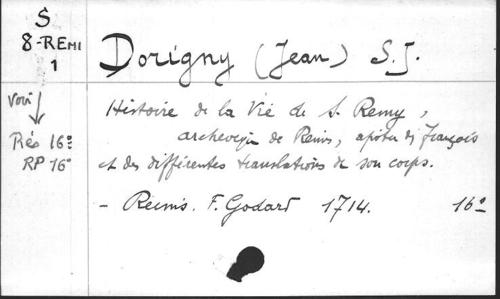 S
8-REMI
1
Dorigny (Jean) S.J.
voir
Rés 16º
RP 16º
Histoire de la Vie de S. Remy,
archevêq de Reims, apôtre des François
et des différentes translations de son corps.
- Reims. F. Godard 1714. 16º